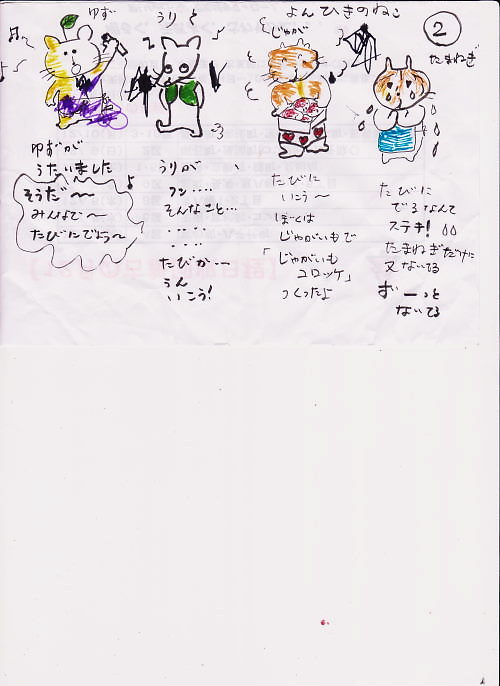 よんひきのねこ
②
ゆず
うりと
じゃが
たまねぎ
ゆずが
うたいました
そうだ〜
みんなで〜
たびにでよう〜
うりが
フン....
そんなこと...
‥ ‥ ‥
‥ ‥ ‥
たびか・・ー
うん
いこう!
たびに
いこう〜
ぼくは
じゃがいもで
「じゃがいも
コロッケ」
つくったよ
たびに
でるなんて
ステキ!
たまねぎだけに
又ないてる
ずーっと
ないてる